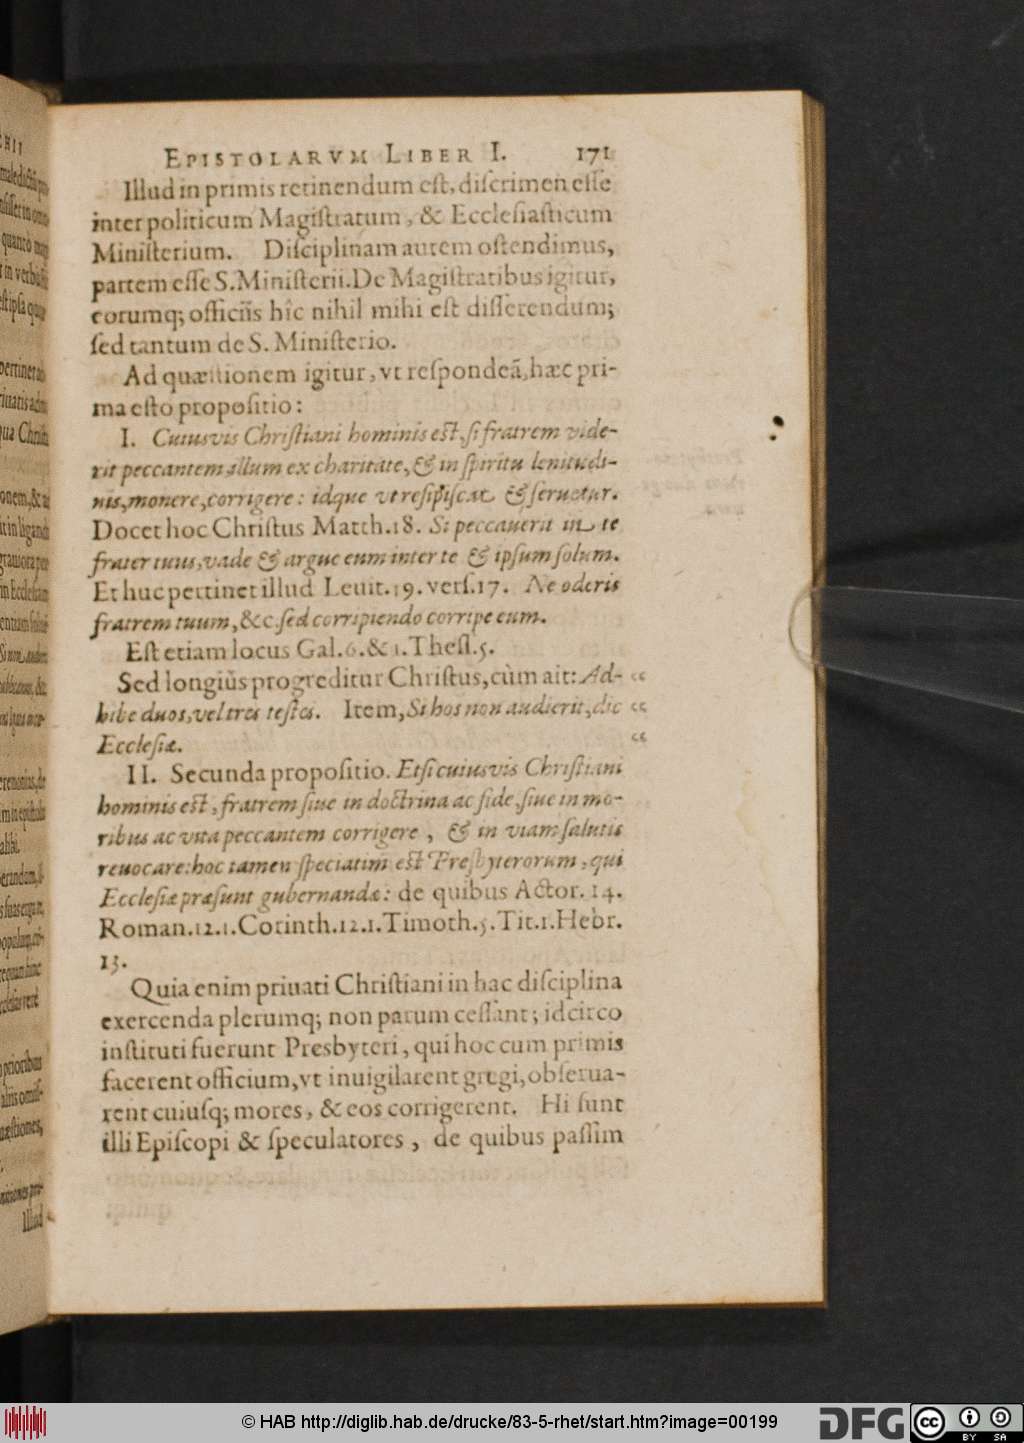 EPISTOLARVM LIBER I. 171
Illud in primis retinendum est, discrimen esse
inter politicum Magistratum, & Ecclesiasticum
Ministerium. Disciplinam autem ostendimus,
partem esse S. Ministerii. De Magistratibus igitur,
eorumq; officiis hîc nihil mihi est disserendum;
sed tantum de S. Ministerio.
Ad quæstionem igitur, vt respondeã, hæc pri-
ma esto propositio:
I. Cuiusvis Christiani hominis est, si fratrem vide-
rit peccantem, illum ex charitate, & in spiritu lenitudi-
nis, monere, corrigere: idque vt resipiscat & seruetur.
Docet hoc Christus Matth. 18. Si peccauerit in te
frater tuus, vade & argue eum inter te & ipsum solum.
Et huc pertinet illud Leuit. 19. vers. 17. Ne oderis
fratrem tuum, &c. sed corripiendo corripe eum.
Est etiam locus Gal. 6. & 1. Thess. 5.
Sed longiùs progreditur Christus, cùm ait: Ad- “
hibe duos, vel tres testes. Item, Si hos non audierit, dic “
Ecclesiæ. “
II. Secunda propositio. Etsi cuiusvis Christiani
hominis est, fratrem siue in doctrina ac fide, siue in mo-
ribus ac vita peccantem corrigere, & in viam salutis
reuocare: hoc tamen speciatim est Presbyterorum, qui
Ecclesiæ præsunt gubernandæ: de quibus Actor. 14.
Roman. 12. 1. Corinth. 12. 1. Timoth. 5. Tit. 1. Hebr.
13.
Quia enim priuati Christiani in hac disciplina
exercenda plerumq; non parum cessant; idcirco
instituti fuerunt Presbyteri, qui hoc cum primis
facerent officium, vt inuigilarent gregi, obserua-
rent cuiusq; mores, & eos corrigerent. Hi sunt
illi Episcopi & speculatores, de quibus passim
Illud
© HAB http://diglib.hab.de/drucke/83-5-rhet/start.htm?image=00199
DFG
cc BY SA